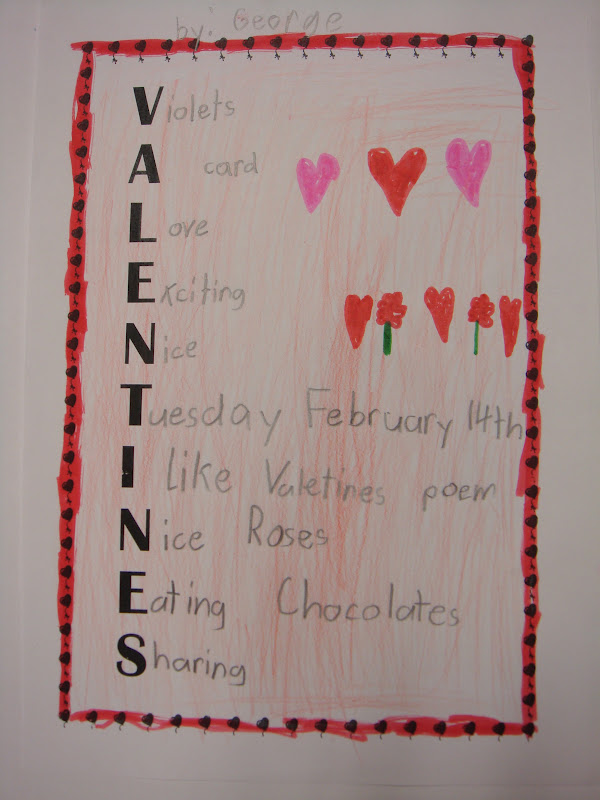 by: George
Violets
A card
Love
Exciting
Nice
Tuesday February 14th
I like Valetines poem
Nice Roses
Eating Chocolates
Sharing